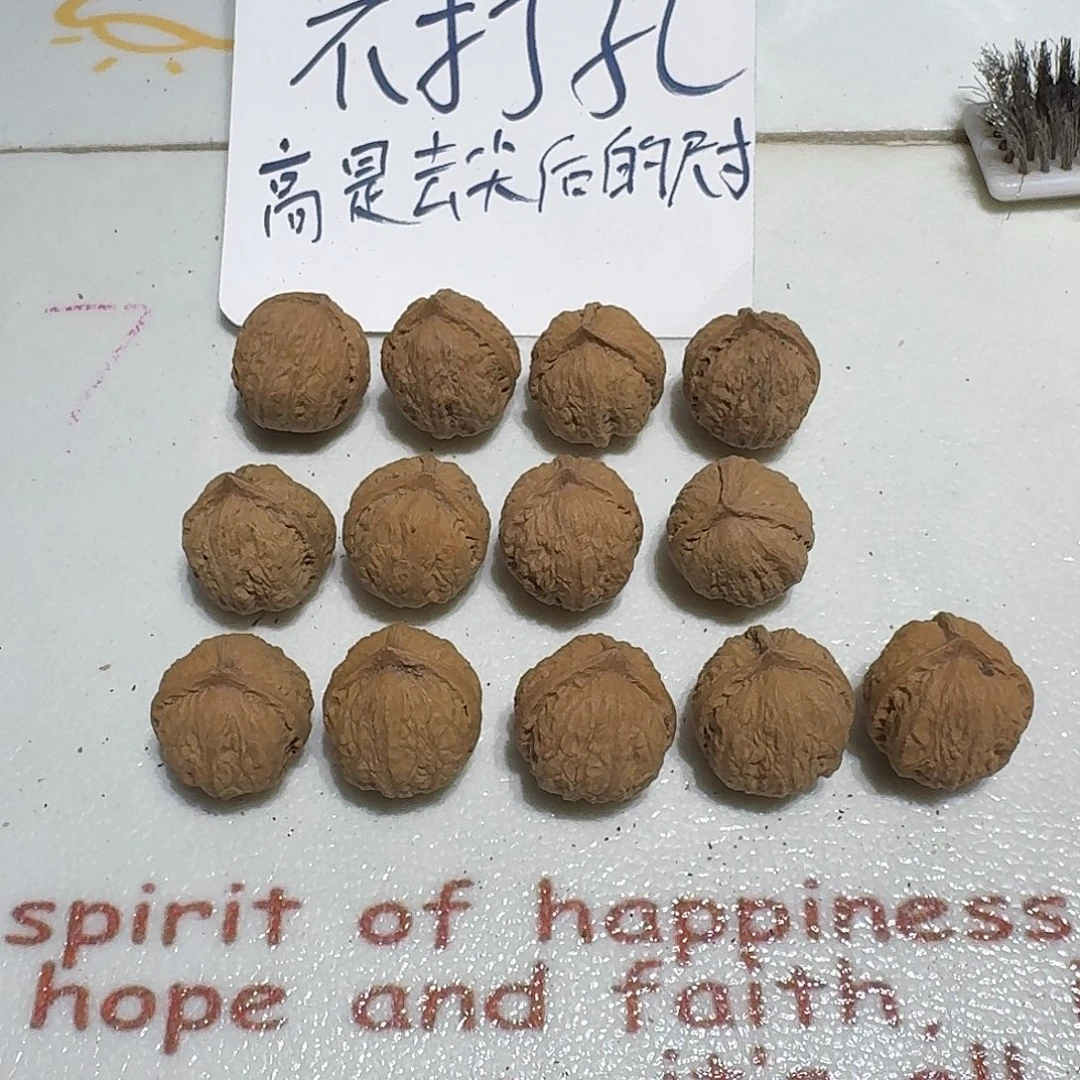 不打孔
高是去尖后的尺寸
7
spirit of happiness
hope and faith,
it's all